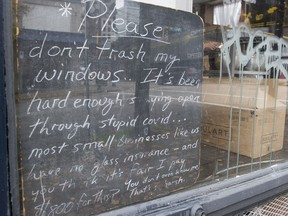 *Please
don't trash my
windows.. It's been
hard enough s ying open
through stupid covid...
most small businesses like us
have no glass insurance - and
you think it's fair I pay
$1800 for this? You don't even
that's